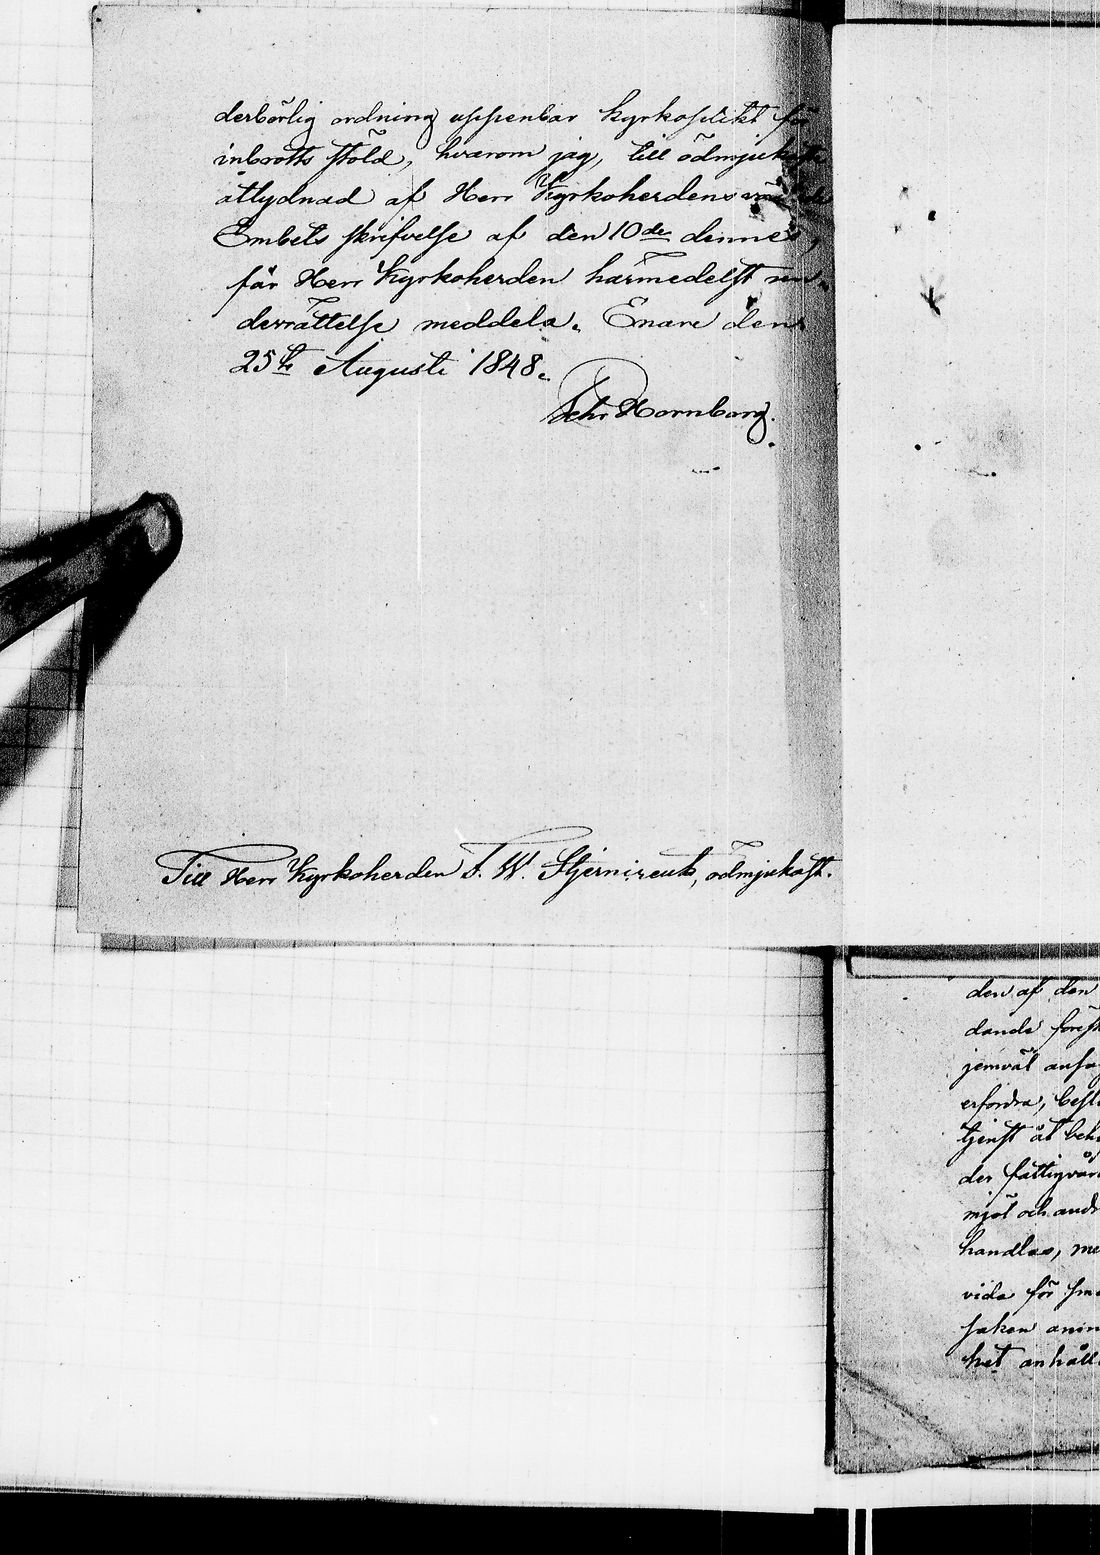 derbörlig ordning uppenbar kyrkoplikt för
inbrotts stöld, hvarom jag, till ödmjukaste
åtlydnad af Herr Kyrkoherdens
Embets skrifvelse af den 10de dennes,
får Herr Kyrkoherden härmedelst un-
derrättelse meddela. Enare den
25te Augusti 1848.
Hornborg.
Till Herr Kyrkoherden F. W. ödmjukast.
den af den
dande
jemväl
erfordra,
tjenst åt
der
mjöl och
handlas,
vida för
saken
het